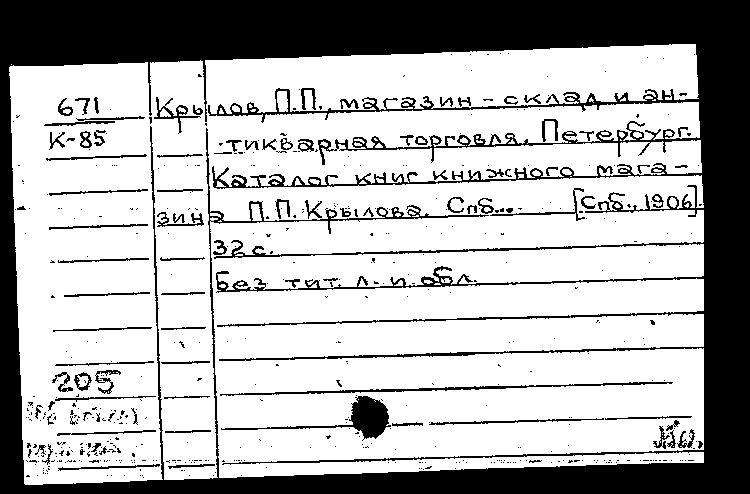 671
К-85
Крылов, П.П., магазин - склад и ан-
тикварная торговля. Петербург.
Каталог книг книжного мага-
зина П.П. Крылова. Спб... [Спб., 1906].
32 с.
Без тит. л. и обл.
205